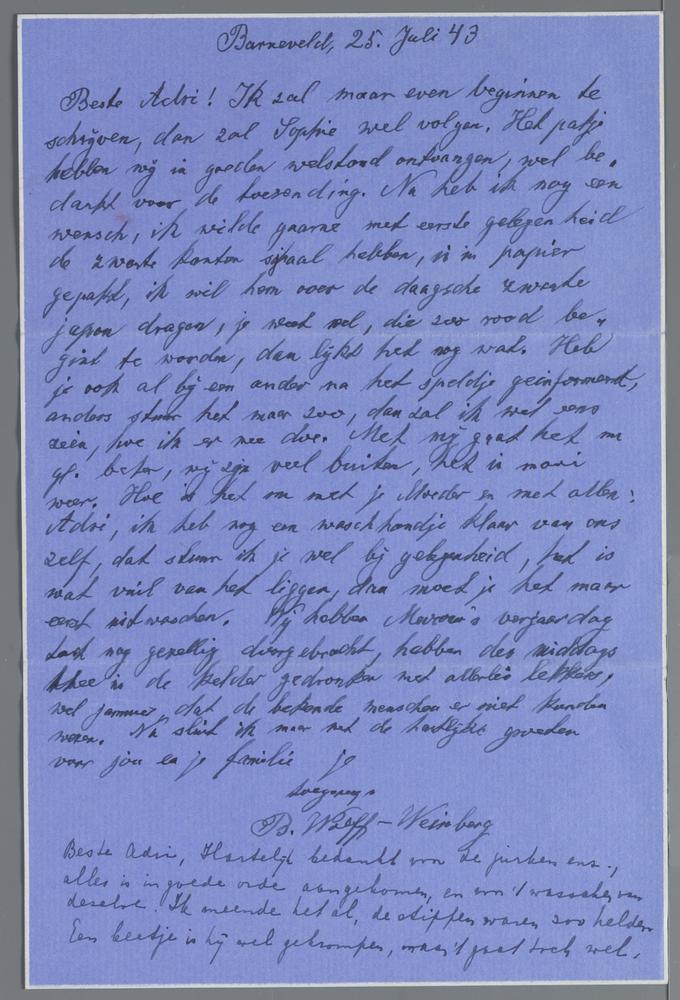 Barneveld, 25. Juli 43
Beste Adri! Ik zal maar even beginnen te
schrijven, dan zal Sophie wel volgen. Het pakje
hebben wij in goeden welstand ontvangen, wel be„
dankt voor de toezending. Nu heb ik nog een
wensch, ik wilde gaarne met eerste gelegenheid
de zwarte kanten sjaal hebben, is in papier
gepakt, ik wil hem over de daagsche zwarte
japon dragen, je weet wel, die zoo rood be„
gint te worden, dan lijkt het nog wat. Heb
je ook al bij een ander na het speldje geïnformeerd,
anders stuur het maar zoo, dan zal ik wel eens
zien, hoe ik er mee doe. Met mij gaat het nu
gl. beter, wij zijn veel buiten, het is mooi
weer. Hoe is het nu met je Moeder en met allen?
Adri, ik heb nog een waschhandje klaar van ons
zelf, dat stuur ik je wel bij gelegenheid, het is
wat vuil van het liggen, dan moet je het maar
eerst uitwasschen. Wij hebben Mevrouw's verjaardag
toch nog gezellig doorgebracht, hebben des middags
thee in de kelder gedronken met allerlei lekkers,
wel jammer dat de bekende menschen er niet konden
wezen. Nu sluit ik maar met de hartelijkste groeten
voor jou en je familie je
toegenegen
B. Wolff-Weinberg
Beste Adri, Hartelijk bedankt voor de jurken enz.,
alles is in goede orde aangekomen, en voor 't wasschen van
dezelve. Ik meende het al, de stippen waren zoo helder.
Een beetje is hij wel gekrompen, maar 't gaat toch wel.